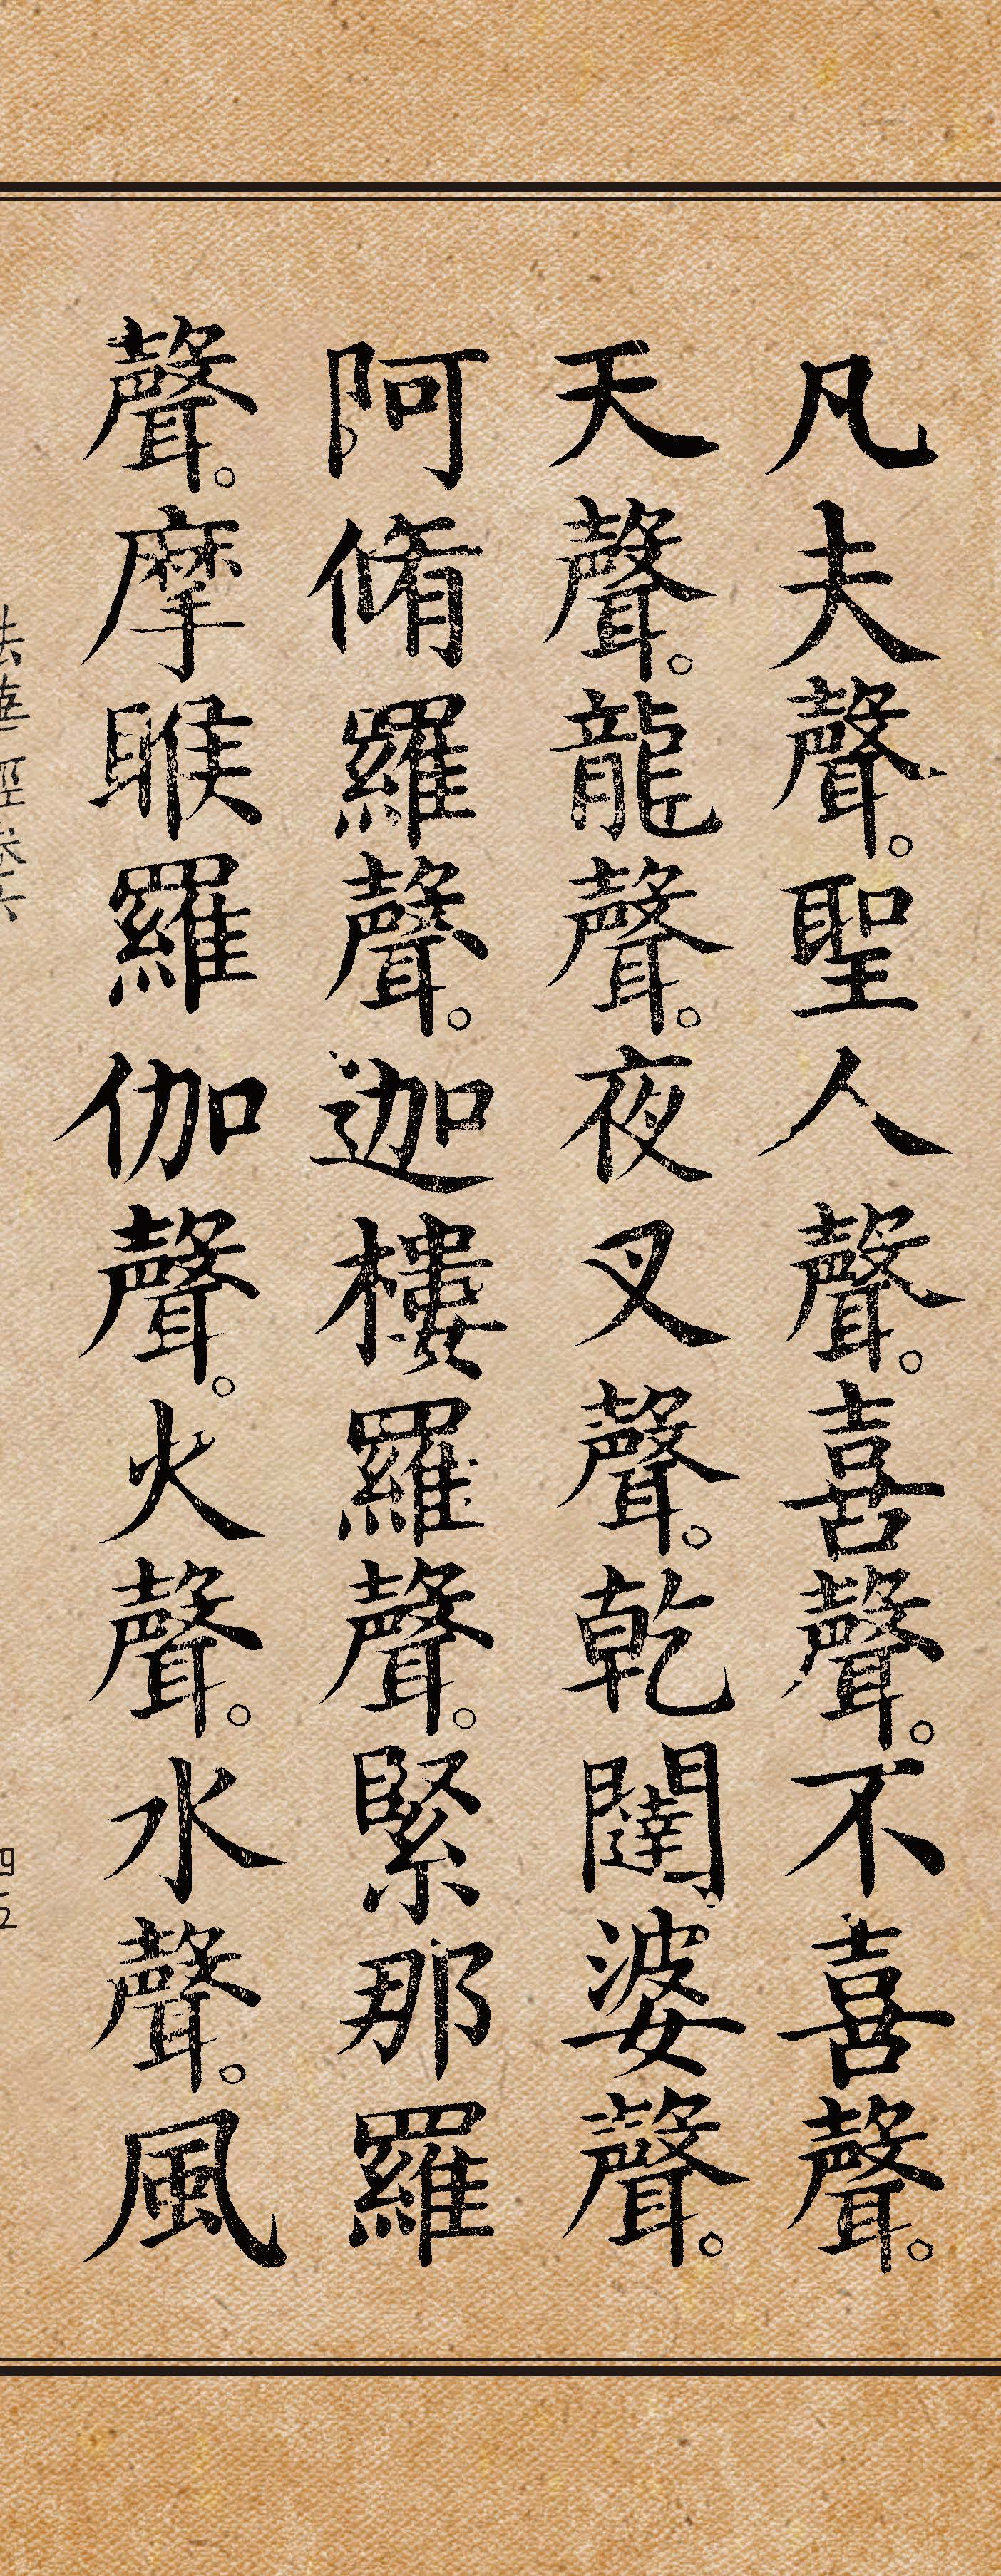 凡夫聲。聖人聲。喜聲。不喜聲。
天聲。龍聲。夜叉聲。乾闥婆聲。
阿脩羅聲。迦樓羅聲。緊那羅
聲。摩睺羅伽聲。火聲。水聲。風
法華經卷六
四五